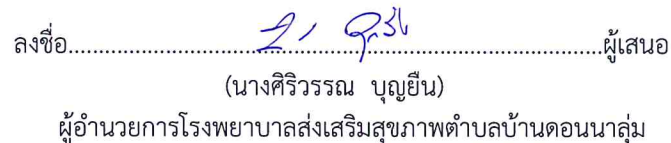 ลงชื่อ........................................................................ผู้เสนอ
(นางศิริวรรณ บุญยืน)
ผู้อำนวยการโรงพยาบาลส่งเสริมสุขภาพตำบลบ้านดอนนาลุ่ม